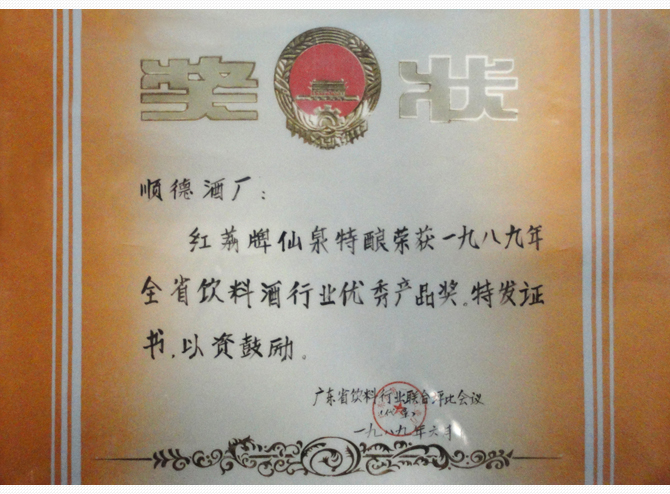 奖状
顺德酒厂：
红荔牌仙泉特酿荣获一九八九年
全省饮料酒行业优秀产品奖。特发证
书，以资鼓励。
广东省饮料行业联合评比会议
一九八九年六月